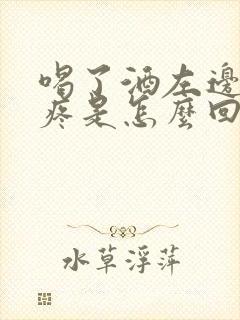 喝了酒左邊
疼是怎麼回
水草浮萍